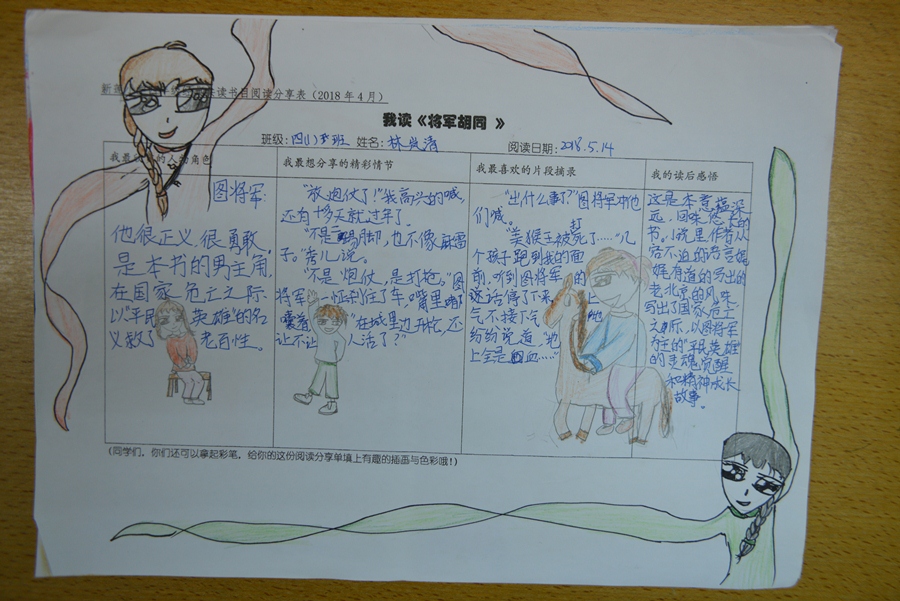 读书目阅读分享表（2018年4月）
我读《将军胡同 》
班级: 姓名: 林 清 阅读日期: 2018.5.14
我最 的人物角色
图将军:
他很正义,很勇敢,
是本书的男主角,
在国家危亡之际,
以"平民英雄"的名
义救了老百姓。
我最想分享的精彩情节
"放炮仗了!"我高兴的喊,
还有十多天就过年了
"不是踢脚,也不像麻雷
子。"秀儿说。
"不是炮仗,是打枪。"图
将军一怔刹住了车,嘴里嘟
囔着"在城里边开枪,还
让不让人活了?"
我最喜欢的片段摘录
"出什么事了?"图将军冲他
们喊。
"美猴子被打死了……"几
个孩子跑到我的面
前,听到图将军的
说话停了下来,上
气不接下气地
纷纷说道,"地
上全是血……"
我的读后感悟
这是本意蕴深
远,回味悠长的
书。书里作者从
容不迫的语言娓
娓有道的写出的
老北京的风味,
写出了国家危亡
之际,以图将军
为主的"平民英雄"
的灵魂觉醒
和精神成长
故事。
(同学们，你们还可以拿起彩笔，给你的这份阅读分享单填上有趣的插画与色彩哦！)